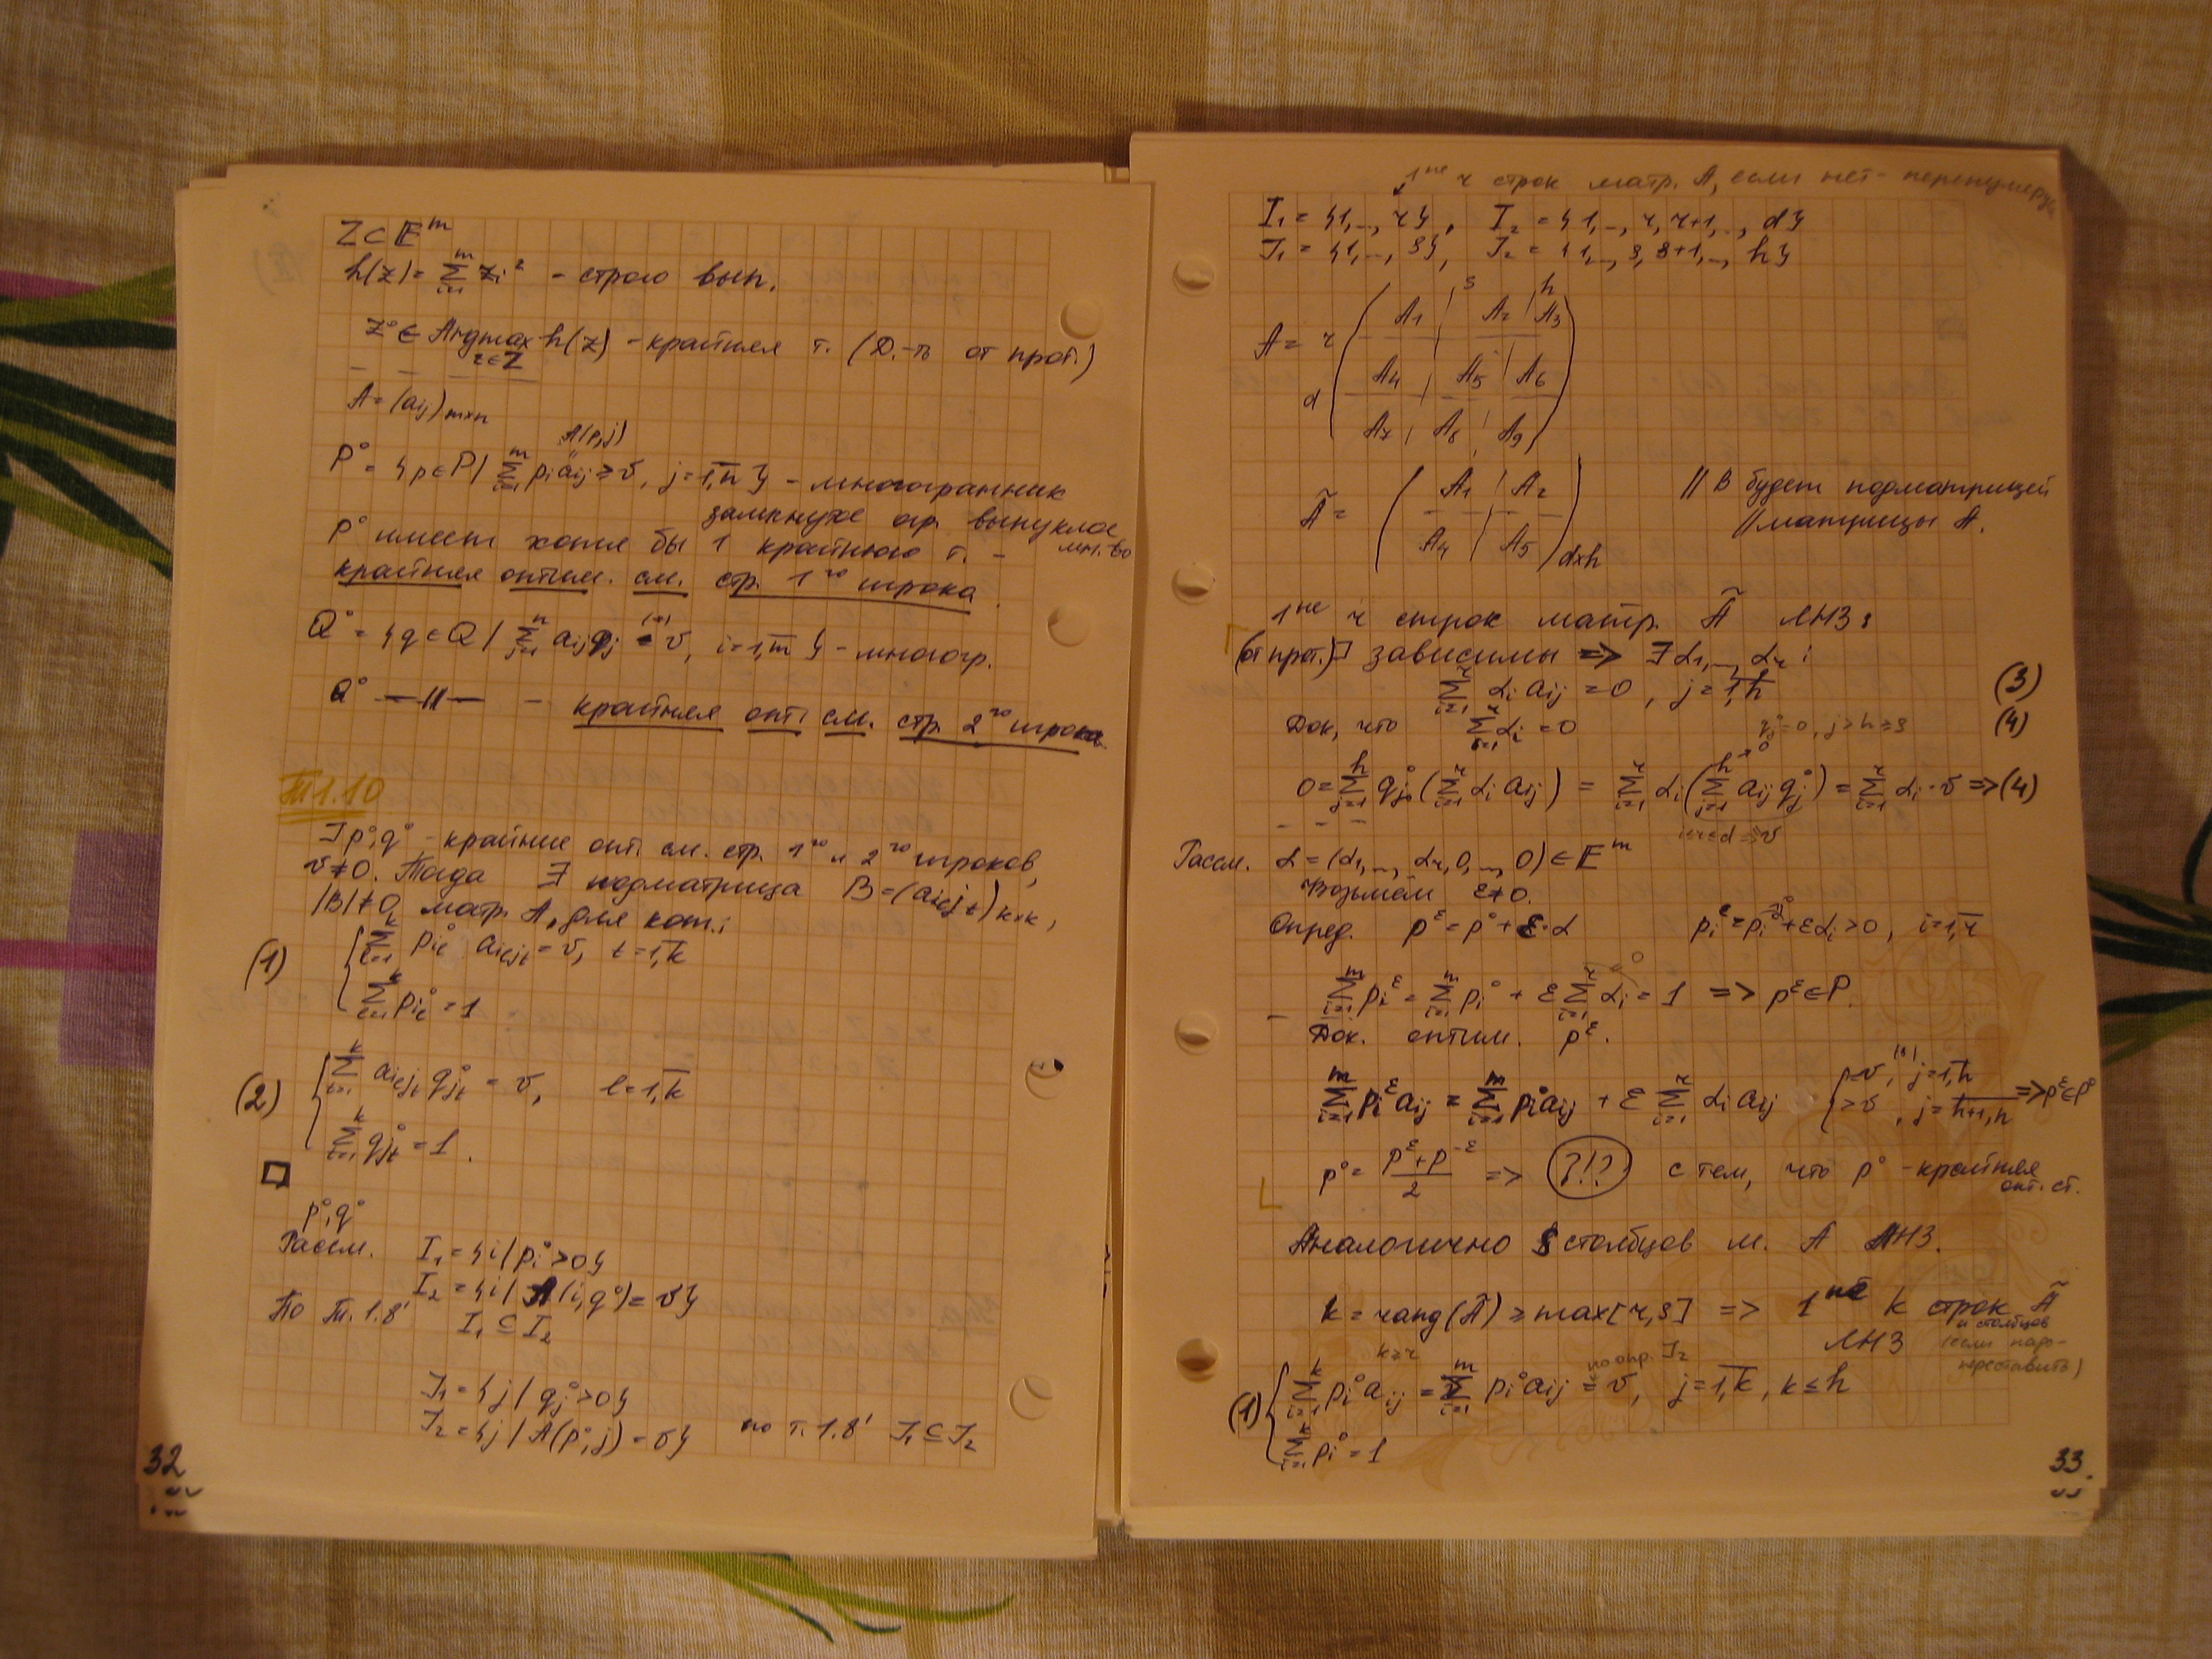 Z ⊂ E^m
h(z) = Σ_{i=1}^m z_i² - строго вып.
z⁰ ∈ Argmax_{z∈Z} h(z) - крайняя т. (Д.-ть от прот.)
A = (a_ij)_{m×n}
A(p,j)
P⁰ = {p ∈ P | Σ_{i=1}^m p_i a_ij ≥ v, j = 1,n} - многогранник
замкнутое огр. выпуклое мн.-во
P⁰ имеет хотя бы 1 крайнюю т. -
крайняя оптим. см. стр. 1го игрока.
Q⁰ = {q ∈ Q | Σ_{j=1}^n a_ij q_j ≤ v, i = 1,m} - многогр.
Q⁰ —//— - крайняя опт. см. стр. 2го игрока.
Т1.10
] p⁰, q⁰ - крайние опт. см. стр. 1го и 2го игроков,
v ≠ 0. Тогда ∃ подматрица B = (a_{i_l j_t})_{k×k},
|B| ≠ 0, матр. A, для кот.:
(1) { Σ_{l=1}^k p⁰_{i_l} a_{i_l j_t} = v, t = 1,k
Σ_{l=1}^k p⁰_{i_l} = 1
(2) { Σ_{t=1}^k a_{i_l j_t} q⁰_{j_t} = v, l = 1,k
Σ_{t=1}^k q⁰_{j_t} = 1.
□
p⁰, q⁰
Рассм. I₁ = {i | p_i⁰ > 0}
I₂ = {i | A(i, q⁰) = v}
По т. 1.8' I₁ ⊆ I₂
J₁ = {j | q_j⁰ > 0}
J₂ = {j | A(p⁰, j) = v} по т. 1.8' J₁ ⊆ J₂
32
1ые r строк матр. A, если нет -
I₁ = {1,.., r}, I₂ = {1,.., r, r+1,.., d}
J₁ = {1,.., s}, J₂ = {1,.., s, s+1,.., h}
s h
A = r ( A₁ | A₂ | A₃
d A₄ | A₅ | A₆
A₇ | A₈ | A₉ )
Ã = ( A₁ | A₂ // B будет подматрицей
A₄ | A₅ )_{d×h} // матрицы A.
1ые r строк матр. Ã ЛНЗ:
(от прот.) ] зависимы => ∃ α₁,.., α_r :
Σ_{i=1}^r α_i a_ij = 0, j = 1,h (3)
Док, что Σ_{i=1}^r α_i = 0 q_j⁰ = 0, j > h ≥ s (4)
0 = Σ_{j=1}^h q_j⁰ (Σ_{i=1}^r α_i a_ij) = Σ_{i=1}^r α_i (Σ_{j=1}^h a_ij q_j⁰) = Σ_{i=1}^r α_i · v => (4)
i≤r≤d => v
Рассм. α = (α₁,.., α_r, 0,.., 0) ∈ E^m
Возьмём ε ≠ 0.
Опред. p^ε = p⁰ + ε·α p_i^ε = p_i⁰ + εα_i > 0, i = 1,r
Σ_{i=1}^m p_i^ε = Σ_{i=1}^m p_i⁰ + ε Σ_{i=1}^r α_i = 1 => p^ε ∈ P.
Док. оптим. p^ε.
Σ_{i=1}^m p_i^ε a_ij = Σ_{i=1}^m p_i⁰ a_ij + ε Σ_{i=1}^r α_i a_ij { = v, j = 1,h
> v, j = h+1,n => p^ε ∈ P⁰
p⁰ = (p^ε + p^{-ε})/2 => ?!? с тем, что p⁰ - крайняя
опт. ст.
Аналогично s столбцов м. A ЛНЗ.
k = rang(Ã) ≥ max[r,s] => 1ые k строк Ã
и столбцов
ЛНЗ (если надо - переставить)
k≥r по опр. J₂
(1) { Σ_{i=1}^k p_i⁰ a_ij = Σ_{i=1}^m p_i⁰ a_ij = v, j = 1,k, k ≤ h
Σ_{i=1}^k p_i⁰ = 1
33